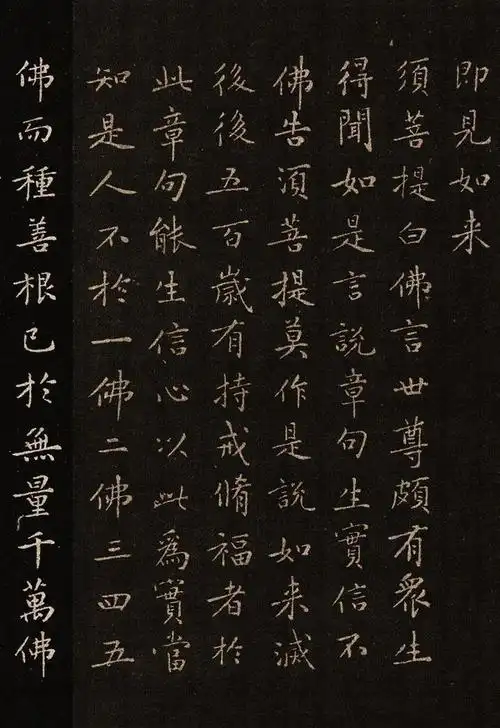 即見如来
須菩提白佛言世尊頗有衆生
得聞如是言說章句生實信不
佛告須菩提莫作是說如来滅
後後五百歲有持戒脩福者於
此章句能生信心以此為實當
知是人不於一佛二佛三四五
佛而種善根已於無量千萬佛